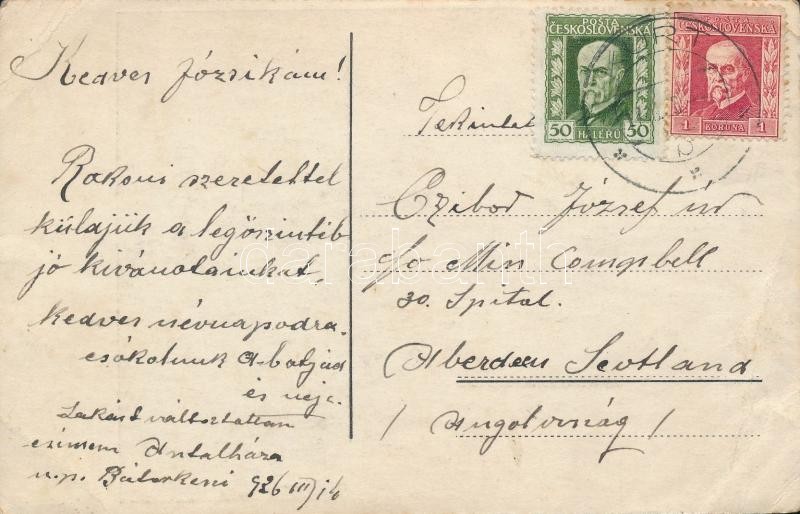 Kedves Józsikám!
Rokoni szeretettel
küldjük a legöszintébb
jó kivánatainkat,
kedves névnapodra.
csókolunk A bátyád
és neje.
Lakást változtattam
czimem Antalháza
u.p. Bátorkeszi 926 III/16
POSTA
ČESKOSLOVENSKÁ
50 HALÉŘŮ 50
POSTA
ČESKOSLOVENSKÁ
1 KORUNA 1
Tekintet
Czibor József úr
c/o Miss Campbell
30. Spital.
Aberdeen Scotland
/ Angolország /
darabanth